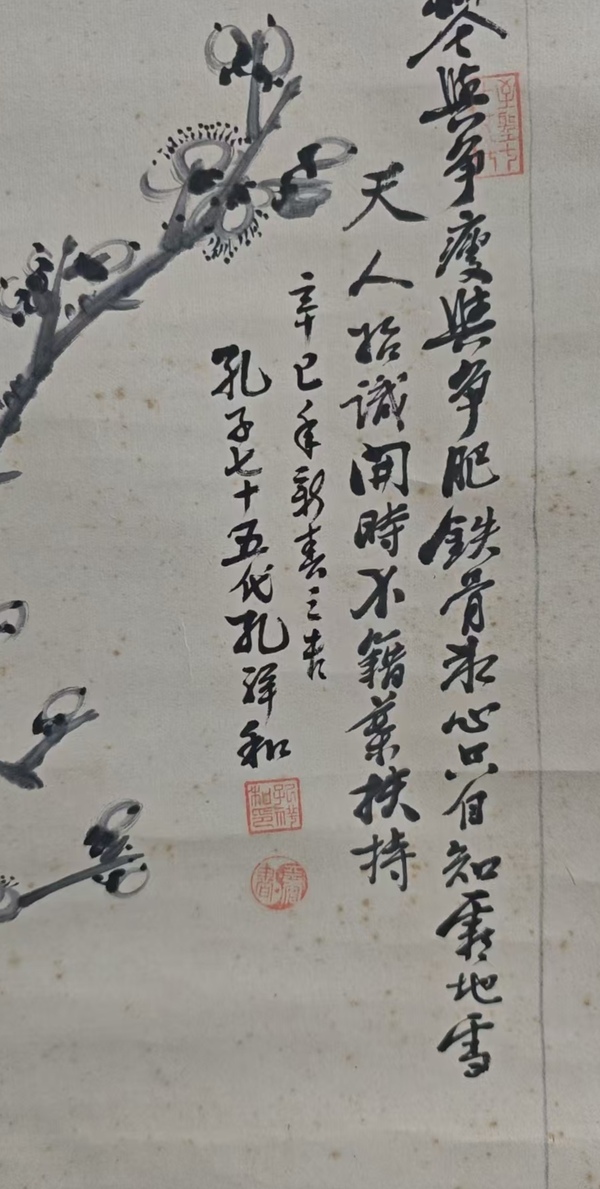 與爭瘦與爭肥鉄骨冰心只自知霜地雪
天人始識開時不籍葉扶持
辛巳年新春之吉
孔子七十五代孔祥和
孔祥和印